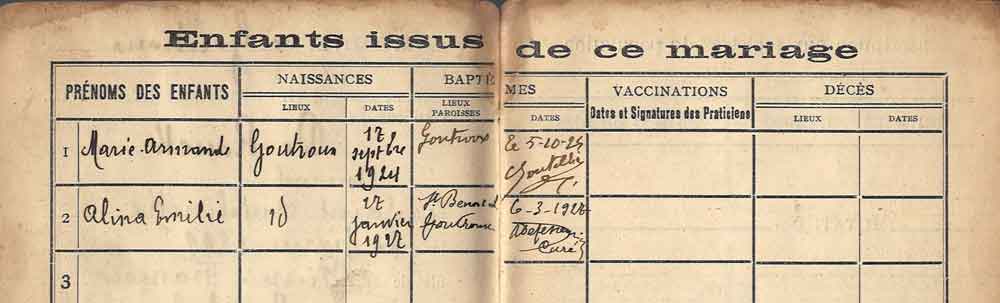 Enfants issus de ce mariage
PRÉNOMS DES ENFANTS
NAISSANCES
LIEUX
DATES
BAPTÊMES
LIEUX
PAROISSES
DATES
VACCINATIONS
Dates et Signatures des Praticiens
DÉCÈS
LIEUX
DATES
1
Marie-Armande
Goutroux
17
septbre
1924
Goutroux
le 5-10-24
2
Alina Emilie
id
27
janvier
1927
St Benoit
Goutroux
6-3-1927
Curé
3